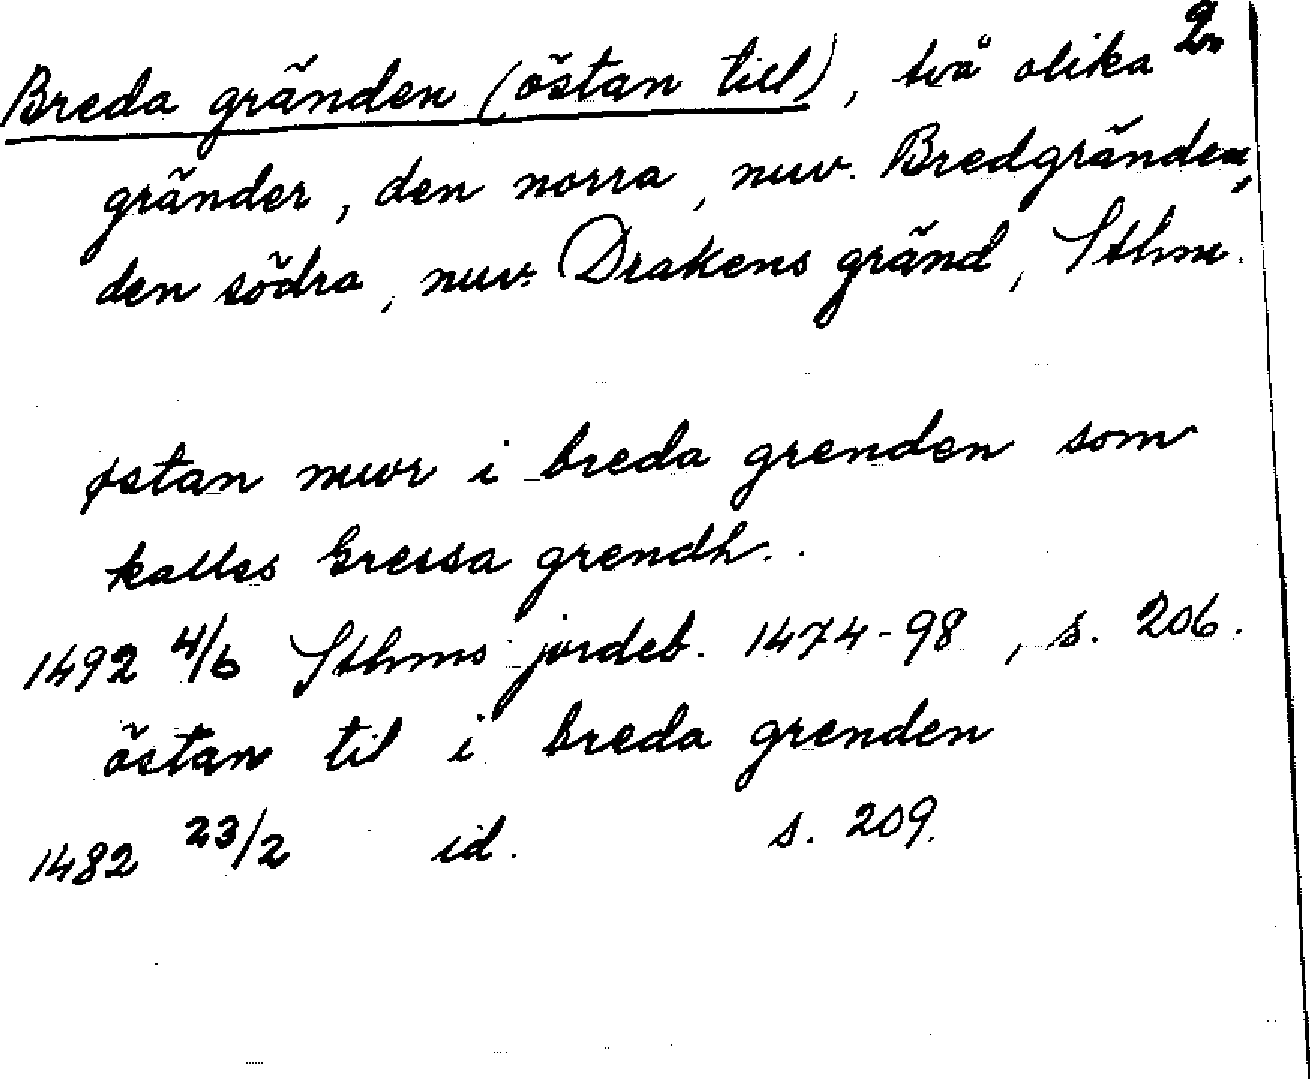 Breda gränden (östan till), två olika 2
gränder, den norra, nuv. Bredgränden,
den södra, nuv. Drakens gränd, Sthm.
østan mwr i breda grenden som
kalles Gressa grendh.
1492 4/6 Sthms jordeb. 1474-98, s. 206.
östan til i breda grenden
1482 23/2 id. s. 209.